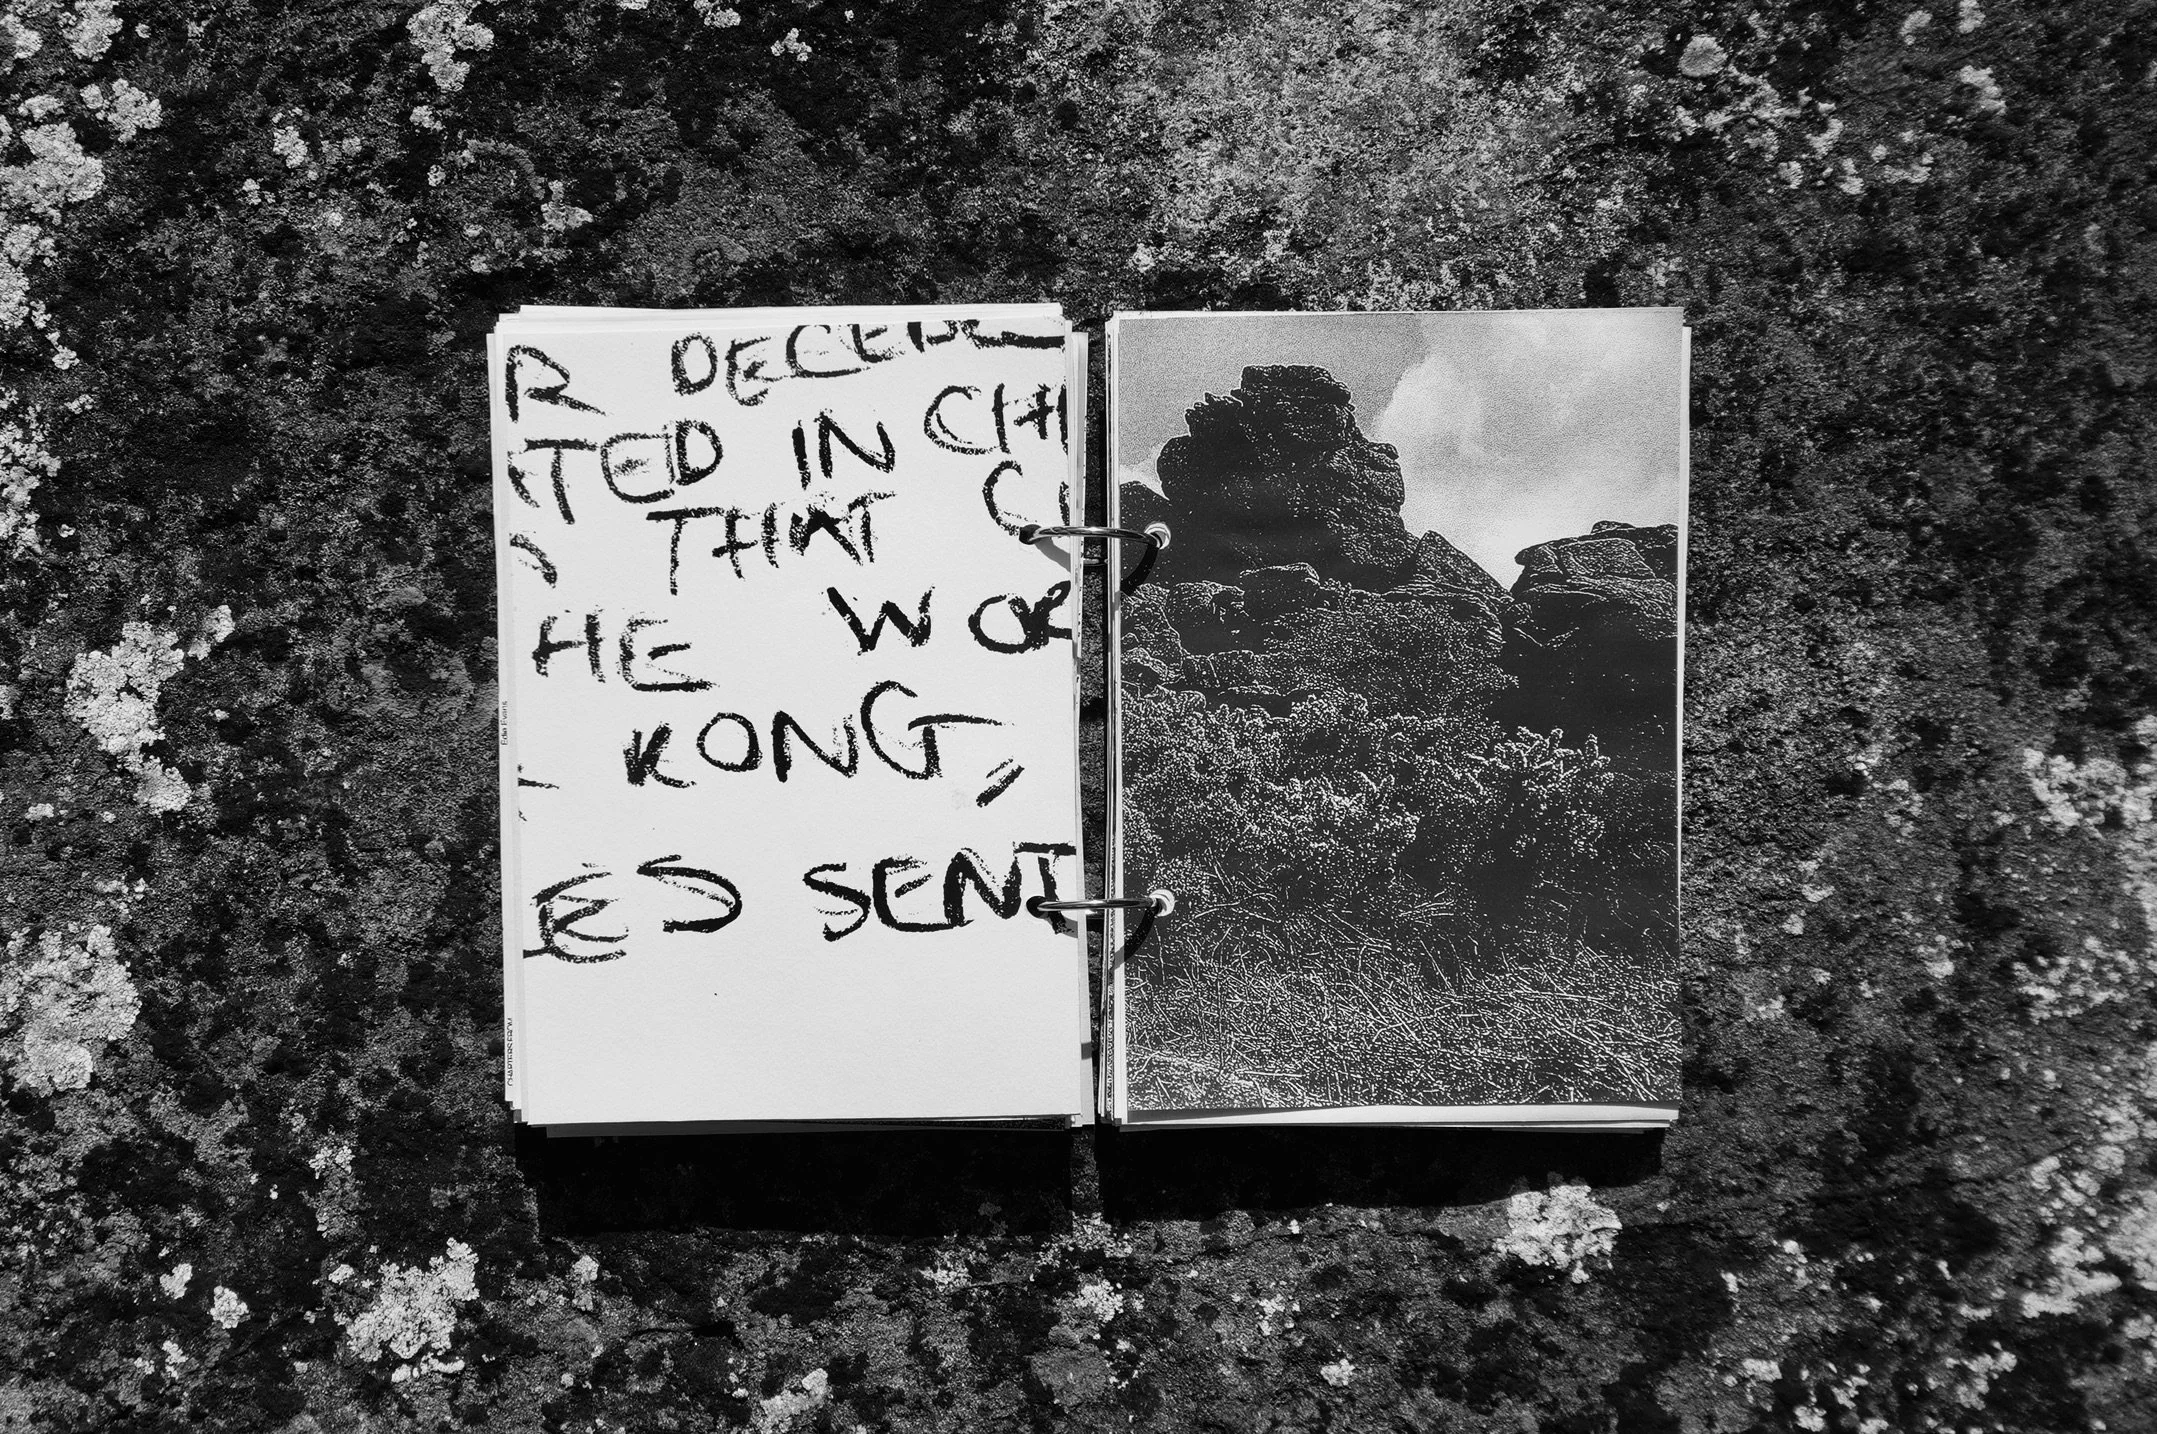 R DECEMB
TED IN CH
THAT C
HE WOR
KONG,
ED SENT
Edie Evans
CHAPTERS FROM